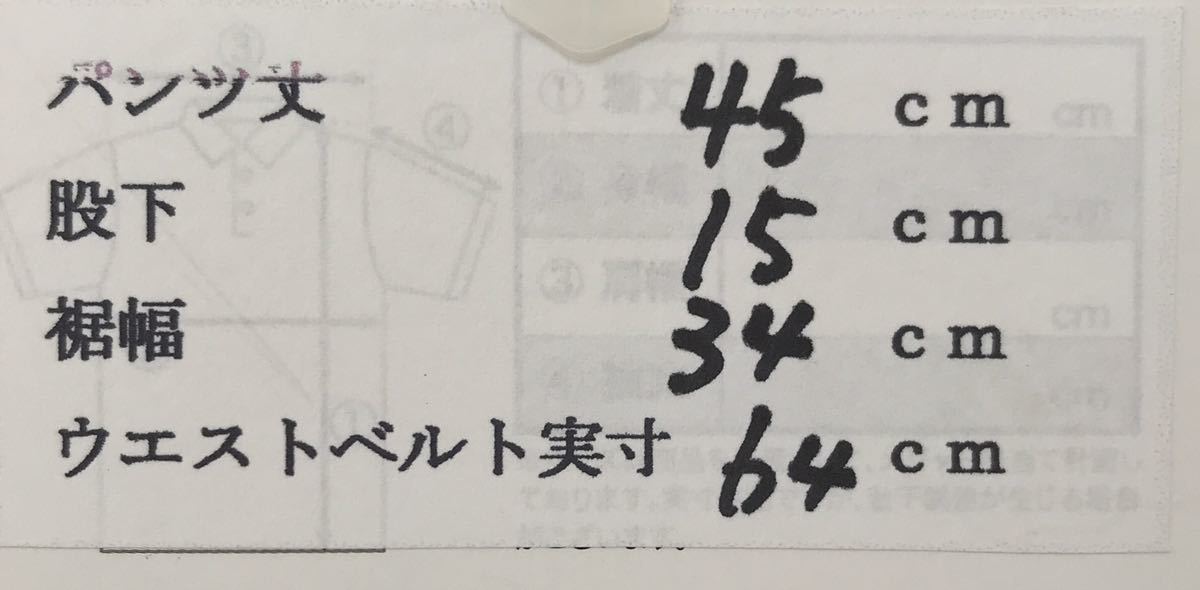 パンツ丈 45 cm
股下 15 cm
裾幅 34 cm
ウエストベルト実寸 64 cm